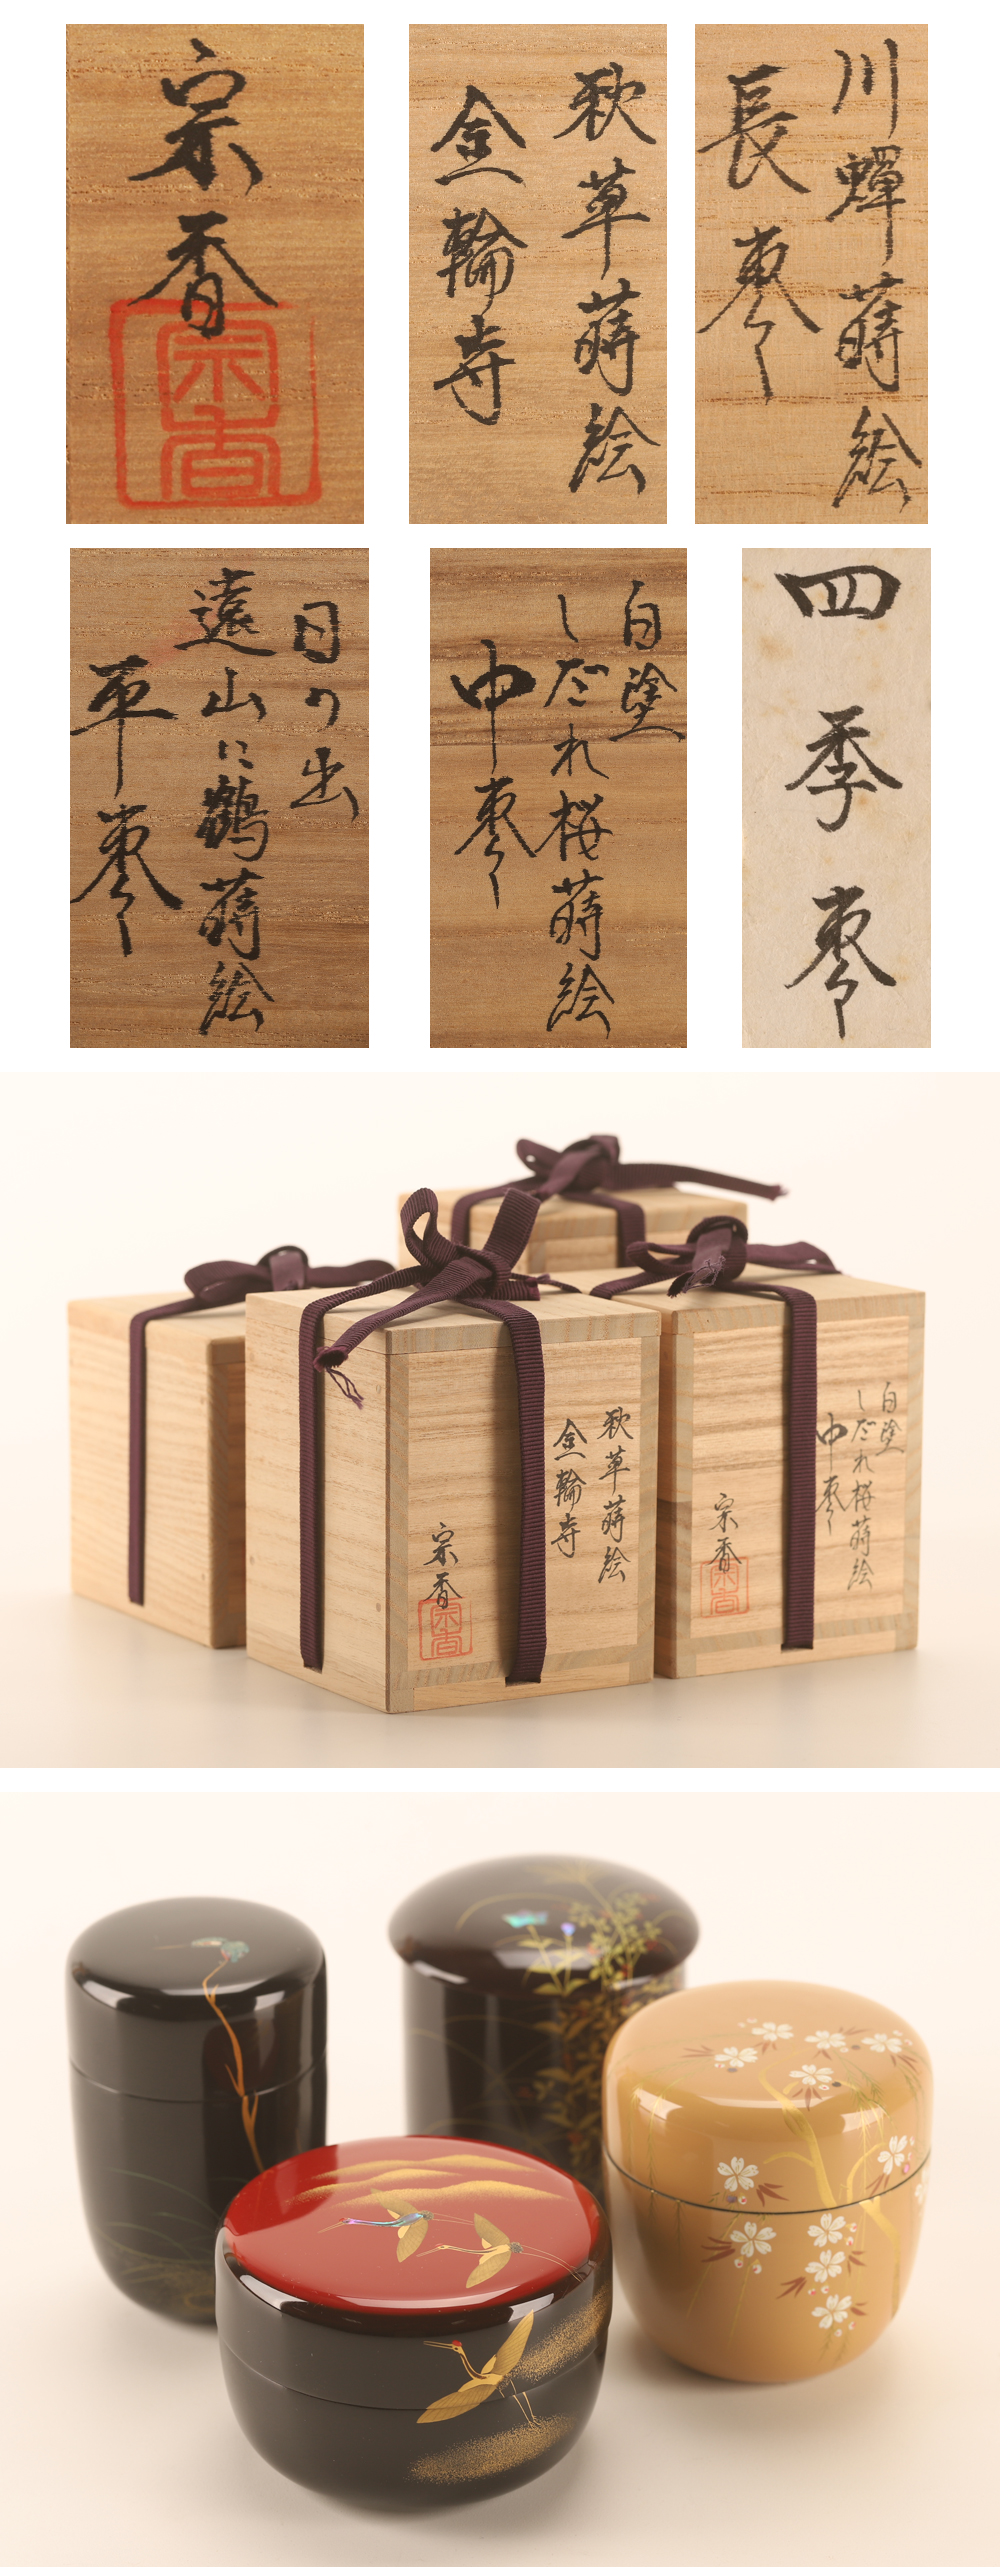 宗香
宗香
秋草蒔絵
金輪寺
川蟬蒔絵
長棗
日の出
遠山に鶴蒔絵
平棗
白塗
しだれ桜蒔絵
中棗
四季棗
秋草蒔絵
金輪寺
宗香
宗香
白塗
しだれ桜蒔絵
中棗
宗香
宗香